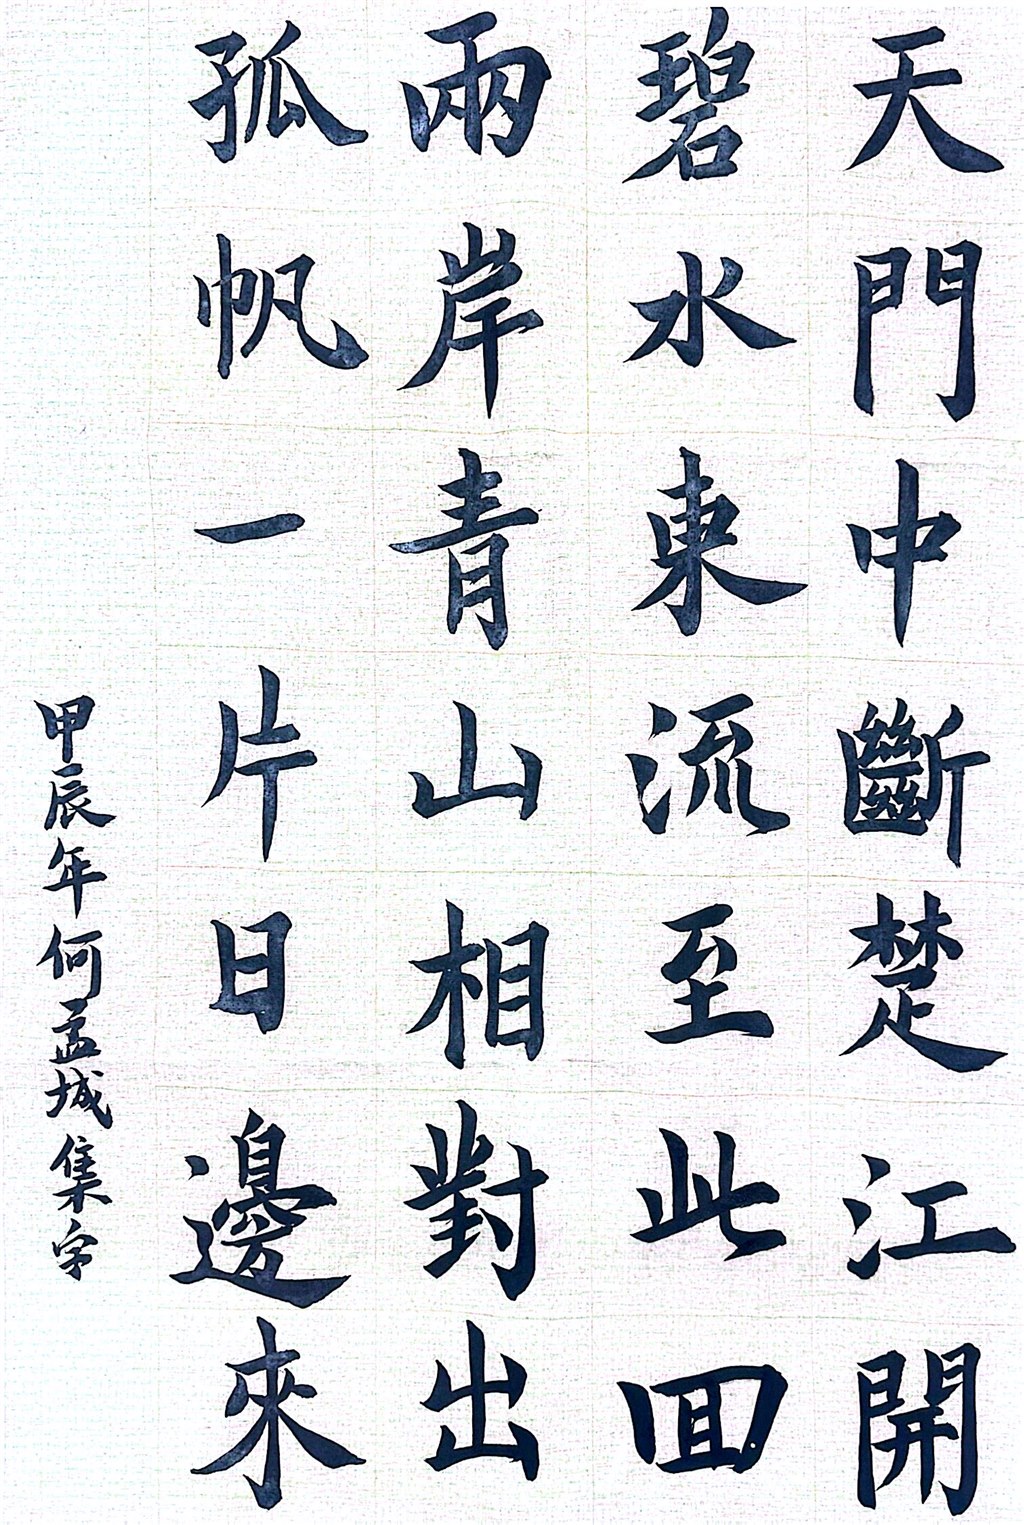 天門中斷楚江開
碧水東流至此回
兩岸青山相對出
孤帆一片日邊來
甲辰年何孟城集字